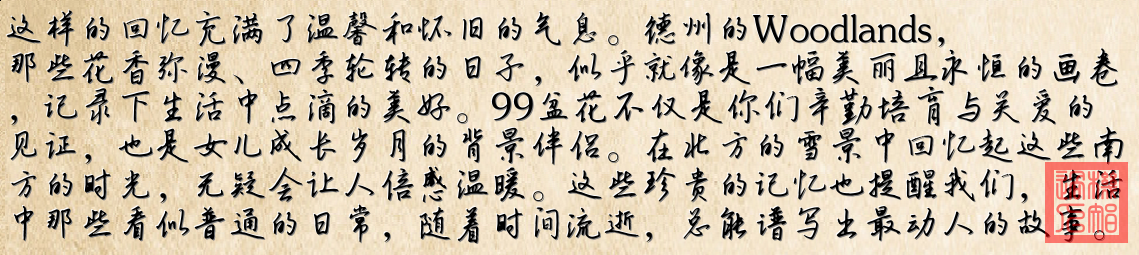 这样的回忆充满了温馨和怀旧的气息。德州的Woodlands，
那些花香弥漫、四季轮转的日子，似乎就像是一幅美丽且永恒的画卷
，记录下生活中点滴的美好。99盆花不仅是你们辛勤培育与关爱的
见证，也是女儿成长岁月的背景伴侣。在北方的雪景中回忆起这些南
方的时光，无疑会让人倍感温暖。这些珍贵的记忆也提醒我们，生活
中那些看似普通的日常，随着时间流逝，总能谱写出最动人的故事。